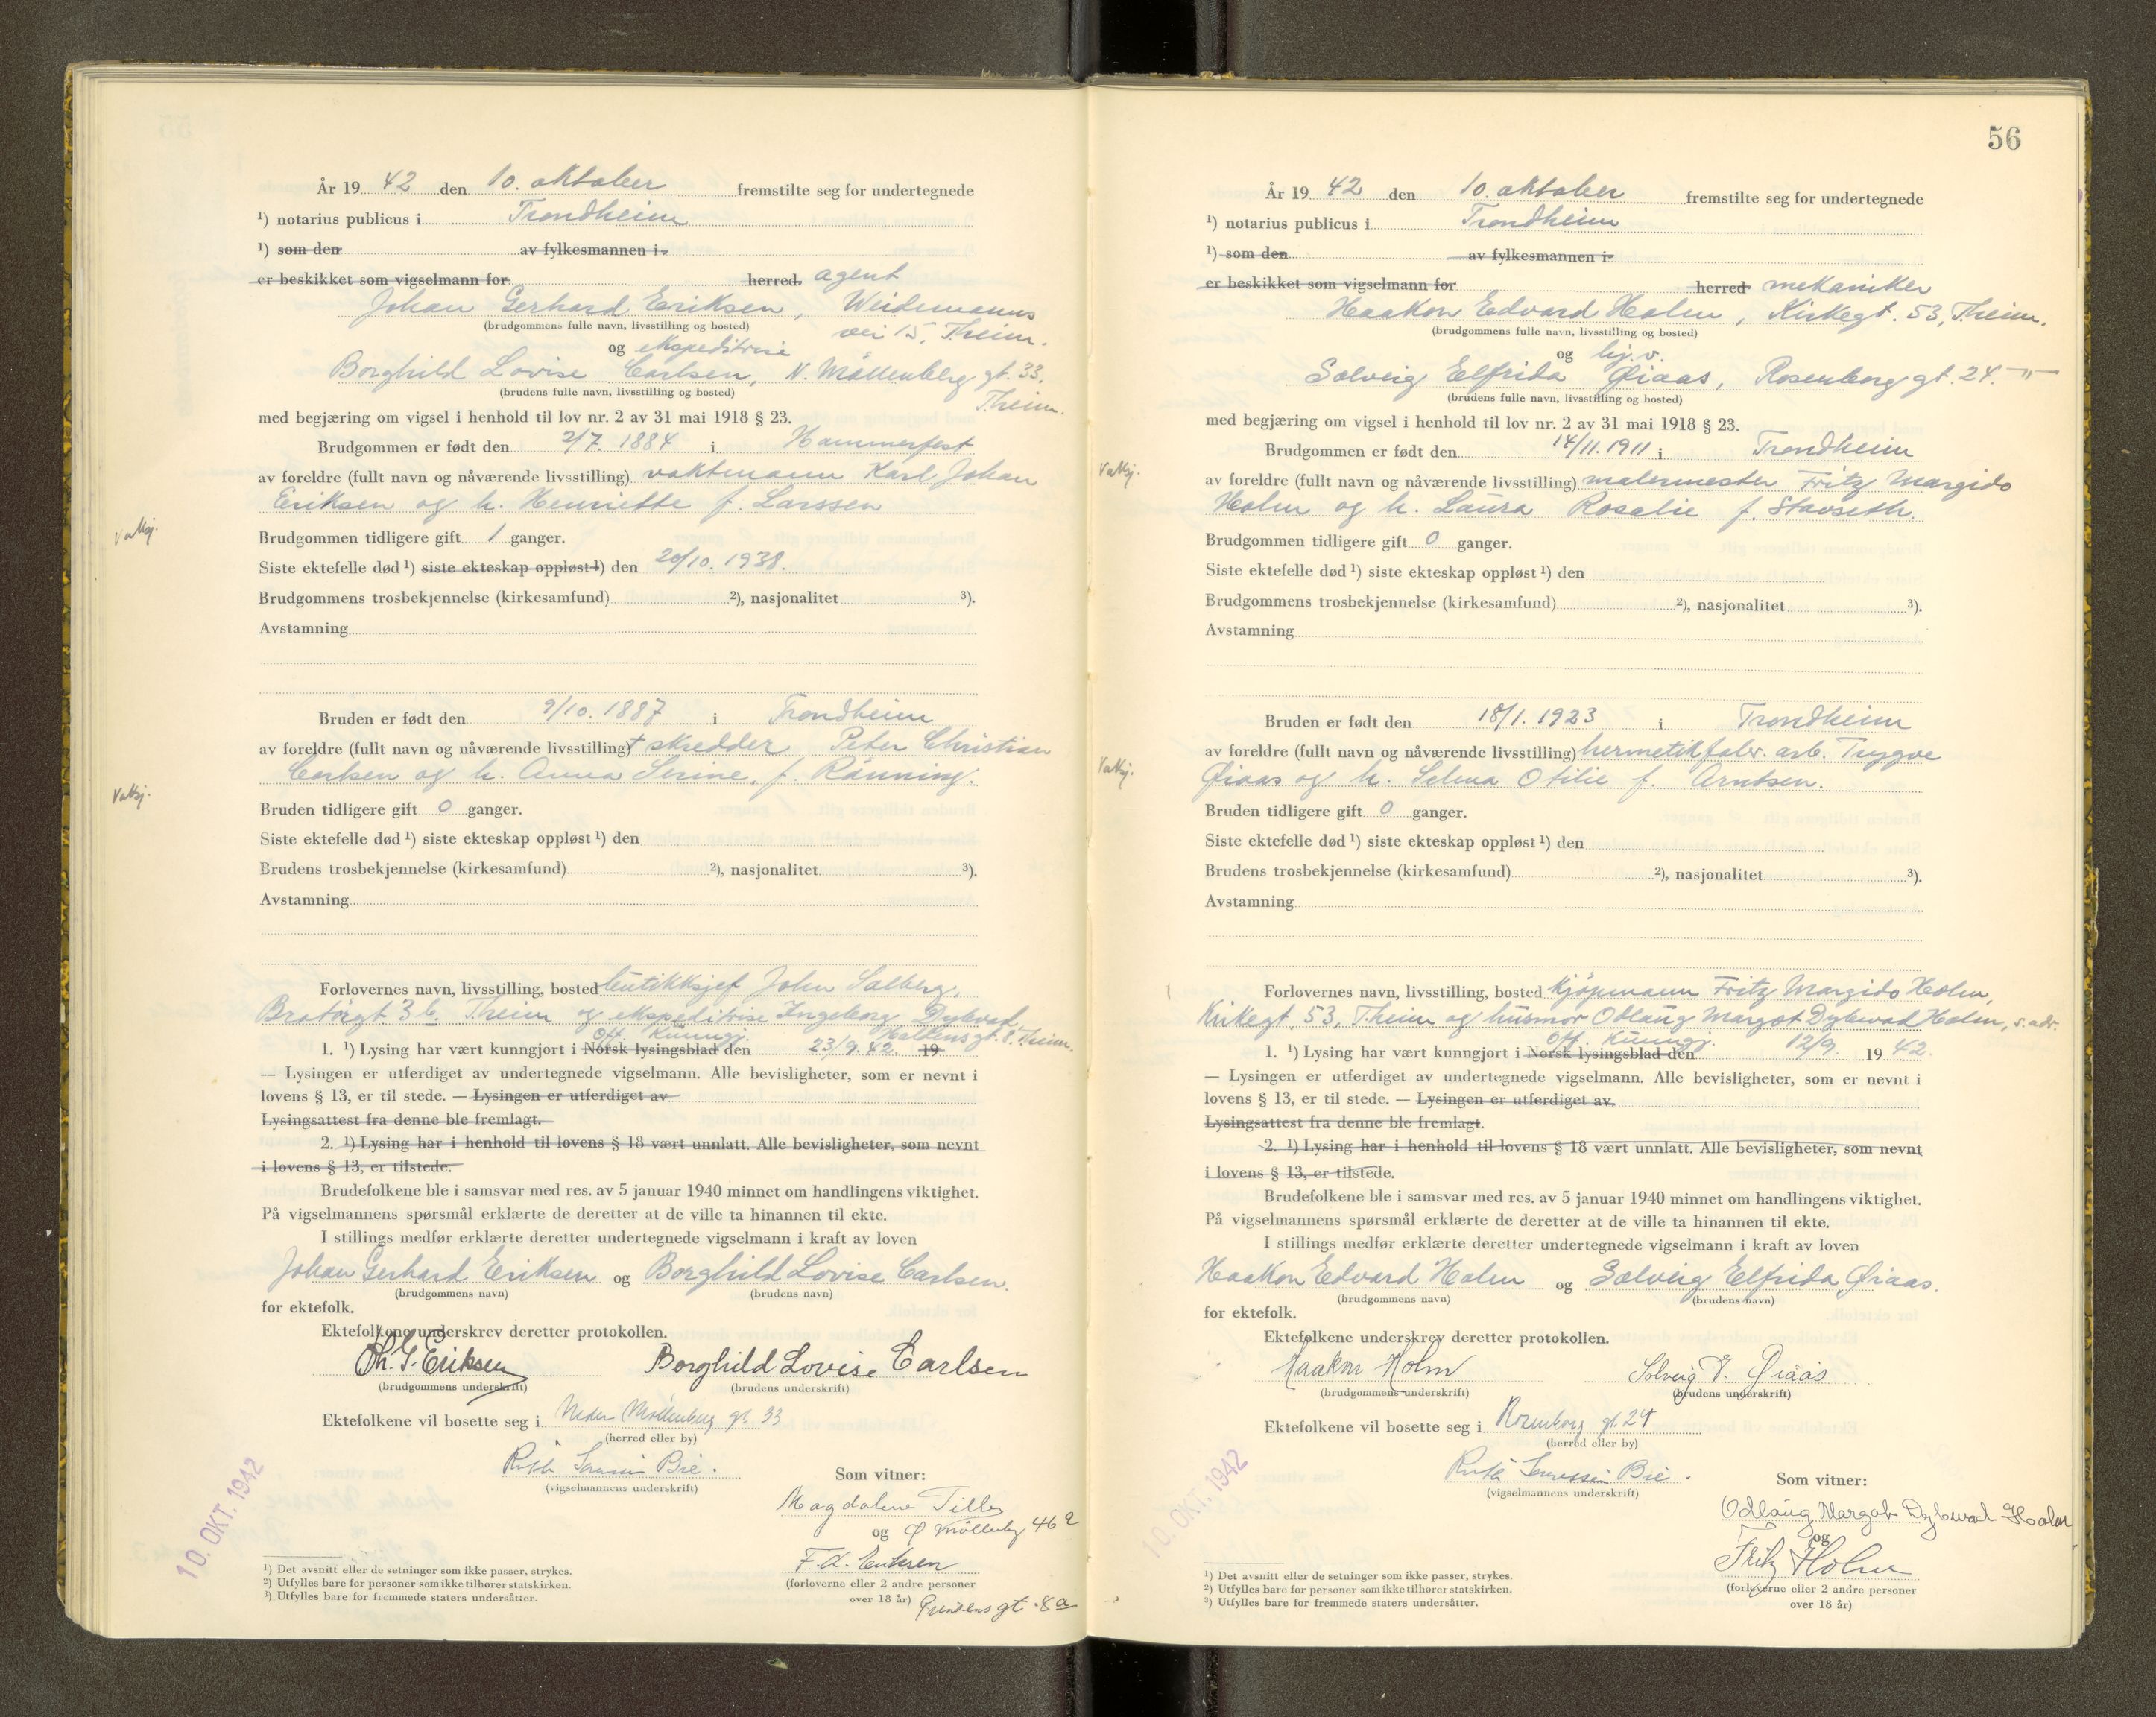 År 19 42 den 10. oktober fremstilte seg for undertegnede
¹) notarius publicus i Trondheim
¹) som den av fylkesmannen i
er beskikket som vigselmann for herred. agent
Johan Gerhard Eriksen, Weidemanns
(brudgommens fulle navn, livsstilling og bosted) vei 15, T.heim.
og ekspeditrise
Borghild Lovise Carlsen, N. Möllenberg gt. 33,
(brudens fulle navn, livsstilling og bosted) T.heim.
med begjæring om vigsel i henhold til lov nr. 2 av 31 mai 1918 § 23.
Brudgommen er født den 2/7. 1884 i Hammerfest
av foreldre (fullt navn og nåværende livsstilling) vaktmann Karl Johan
Eriksen og h. Henriette f. Larssen
Brudgommen tidligere gift 1 ganger.
Siste ektefelle død ¹) siste ekteskap oppløst ¹) den 20/10. 1938.
Brudgommens trosbekjennelse (kirkesamfund) ²), nasjonalitet ³).
Avstamning
Bruden er født den 9/10. 1887 i Trondheim
av foreldre (fullt navn og nåværende livsstilling) † skredder Peter Christian
Carlsen og h. Anna Serine, f. Rönning.
Bruden tidligere gift 0 ganger.
Siste ektefelle død ¹) siste ekteskap oppløst ¹) den
Brudens trosbekjennelse (kirkesamfund) ²), nasjonalitet ³).
Avstamning
Forlovernes navn, livsstilling, bosted butikksjef John Salberg,
Bratörgt. 3 b. T.heim og ekspeditrise Ingeborg Dybwad,
off. Kunngj. Haldens gt. 8. T.heim.
1. ¹) Lysing har vært kunngjort i Norsk lysingsblad den 23/9. 42. 19
— Lysingen er utferdiget av undertegnede vigselmann. Alle bevisligheter, som er nevnt i
lovens § 13, er til stede. — Lysingen er utferdiget av
Lysingsattest fra denne ble fremlagt.
2. ¹) Lysing har i henhold til lovens § 18 vært unnlatt. Alle bevisligheter, som nevnt
i lovens § 13, er tilstede.
Brudefolkene ble i samsvar med res. av 5 januar 1940 minnet om handlingens viktighet.
På vigselmannens spørsmål erklærte de deretter at de ville ta hinannen til ekte.
I stillings medfør erklærte deretter undertegnede vigselmann i kraft av loven
Johan Gerhard Eriksen og Borghild Lovise Carlsen.
(brudgommens navn) (brudens navn)
for ektefolk.
Ektefolkene underskrev deretter protokollen.
Joh. G. Eriksen Borghild Lovise Carlsen
(brudgommens underskrift) (brudens underskrift)
Ektefolkene vil bosette seg i Nedre Möllenberg gt. 33
(herred eller by)
Ruth Bie.
(vigselmannens underskrift) Som vitner:
Magdalene
og Ø Möllenbg 46 a
F. K. Eriksen
(forloverne eller 2 andre personer
over 18 år) gt. 8 a
10. OKT. 1942
¹) Det avsnitt eller de setninger som ikke passer, strykes.
²) Utfylles bare for personer som ikke tilhører statskirken.
³) Utfylles bare for fremmede staters undersåtter.
56
År 19 42 den 10. oktober fremstilte seg for undertegnede
¹) notarius publicus i Trondheim
¹) som den av fylkesmannen i
er beskikket som vigselmann for herred mekaniker
Haakon Edvard Holm, Kirkegt. 53, T.heim.
(brudgommens fulle navn, livsstilling og bosted)
og hj. v.
Solveig Elfrida Øiaas, Rosenborg gt. 24. —"—
(brudens fulle navn, livsstilling og bosted)
med begjæring om vigsel i henhold til lov nr. 2 av 31 mai 1918 § 23.
Brudgommen er født den 14/11. 1911 i Trondheim
av foreldre (fullt navn og nåværende livsstilling) malermester Fritz Margido
Holm og h. Laura Rosalie f. Stavseth.
Brudgommen tidligere gift 0 ganger.
Siste ektefelle død ¹) siste ekteskap oppløst ¹) den
Brudgommens trosbekjennelse (kirkesamfund) ²), nasjonalitet ³).
Avstamning
Bruden er født den 18/1. 1923 i Trondheim
av foreldre (fullt navn og nåværende livsstilling) hermetikfabr. arb. Trygve
Øiaas og h. Selma Otilie f. Arntsen.
Bruden tidligere gift 0 ganger.
Siste ektefelle død ¹) siste ekteskap oppløst ¹) den
Brudens trosbekjennelse (kirkesamfund) ²), nasjonalitet ³).
Avstamning
Forlovernes navn, livsstilling, bosted Kjöpmann Fritz Margido Holm,
Kirkegt. 53, T.heim og husmor Odlaug Margot Dybwad Holm, s. adr.
off. Kunngj.
1. ¹) Lysing har vært kunngjort i Norsk lysingsblad den 12/9. 19 42.
— Lysingen er utferdiget av undertegnede vigselmann. Alle bevisligheter, som er nevnt i
lovens § 13, er til stede. — Lysingen er utferdiget av
Lysingsattest fra denne ble fremlagt.
2. ¹) Lysing har i henhold til lovens § 18 vært unnlatt. Alle bevisligheter, som nevnt
i lovens § 13, er tilstede.
Brudefolkene ble i samsvar med res. av 5 januar 1940 minnet om handlingens viktighet.
På vigselmannens spørsmål erklærte de deretter at de ville ta hinannen til ekte.
I stillings medfør erklærte deretter undertegnede vigselmann i kraft av loven
Haakon Edvard Holm og Solveig Elfrida Øiaas.
(brudgommens navn) (brudens navn)
for ektefolk.
Ektefolkene underskrev deretter protokollen.
Haakon Holm Solveig E. Øiaas
(brudgommens underskrift) (brudens underskrift)
Ektefolkene vil bosette seg i Rosenborg gt. 24
(herred eller by)
Ruth Bie.
(vigselmannens underskrift) Som vitner:
Odlaug Margot Dybwad Holm
og
Fritz Holm
(forloverne eller 2 andre personer
over 18 år)
10. OKT. 1942
¹) Det avsnitt eller de setninger som ikke passer, strykes.
²) Utfylles bare for personer som ikke tilhører statskirken.
³) Utfylles bare for fremmede staters undersåtter.